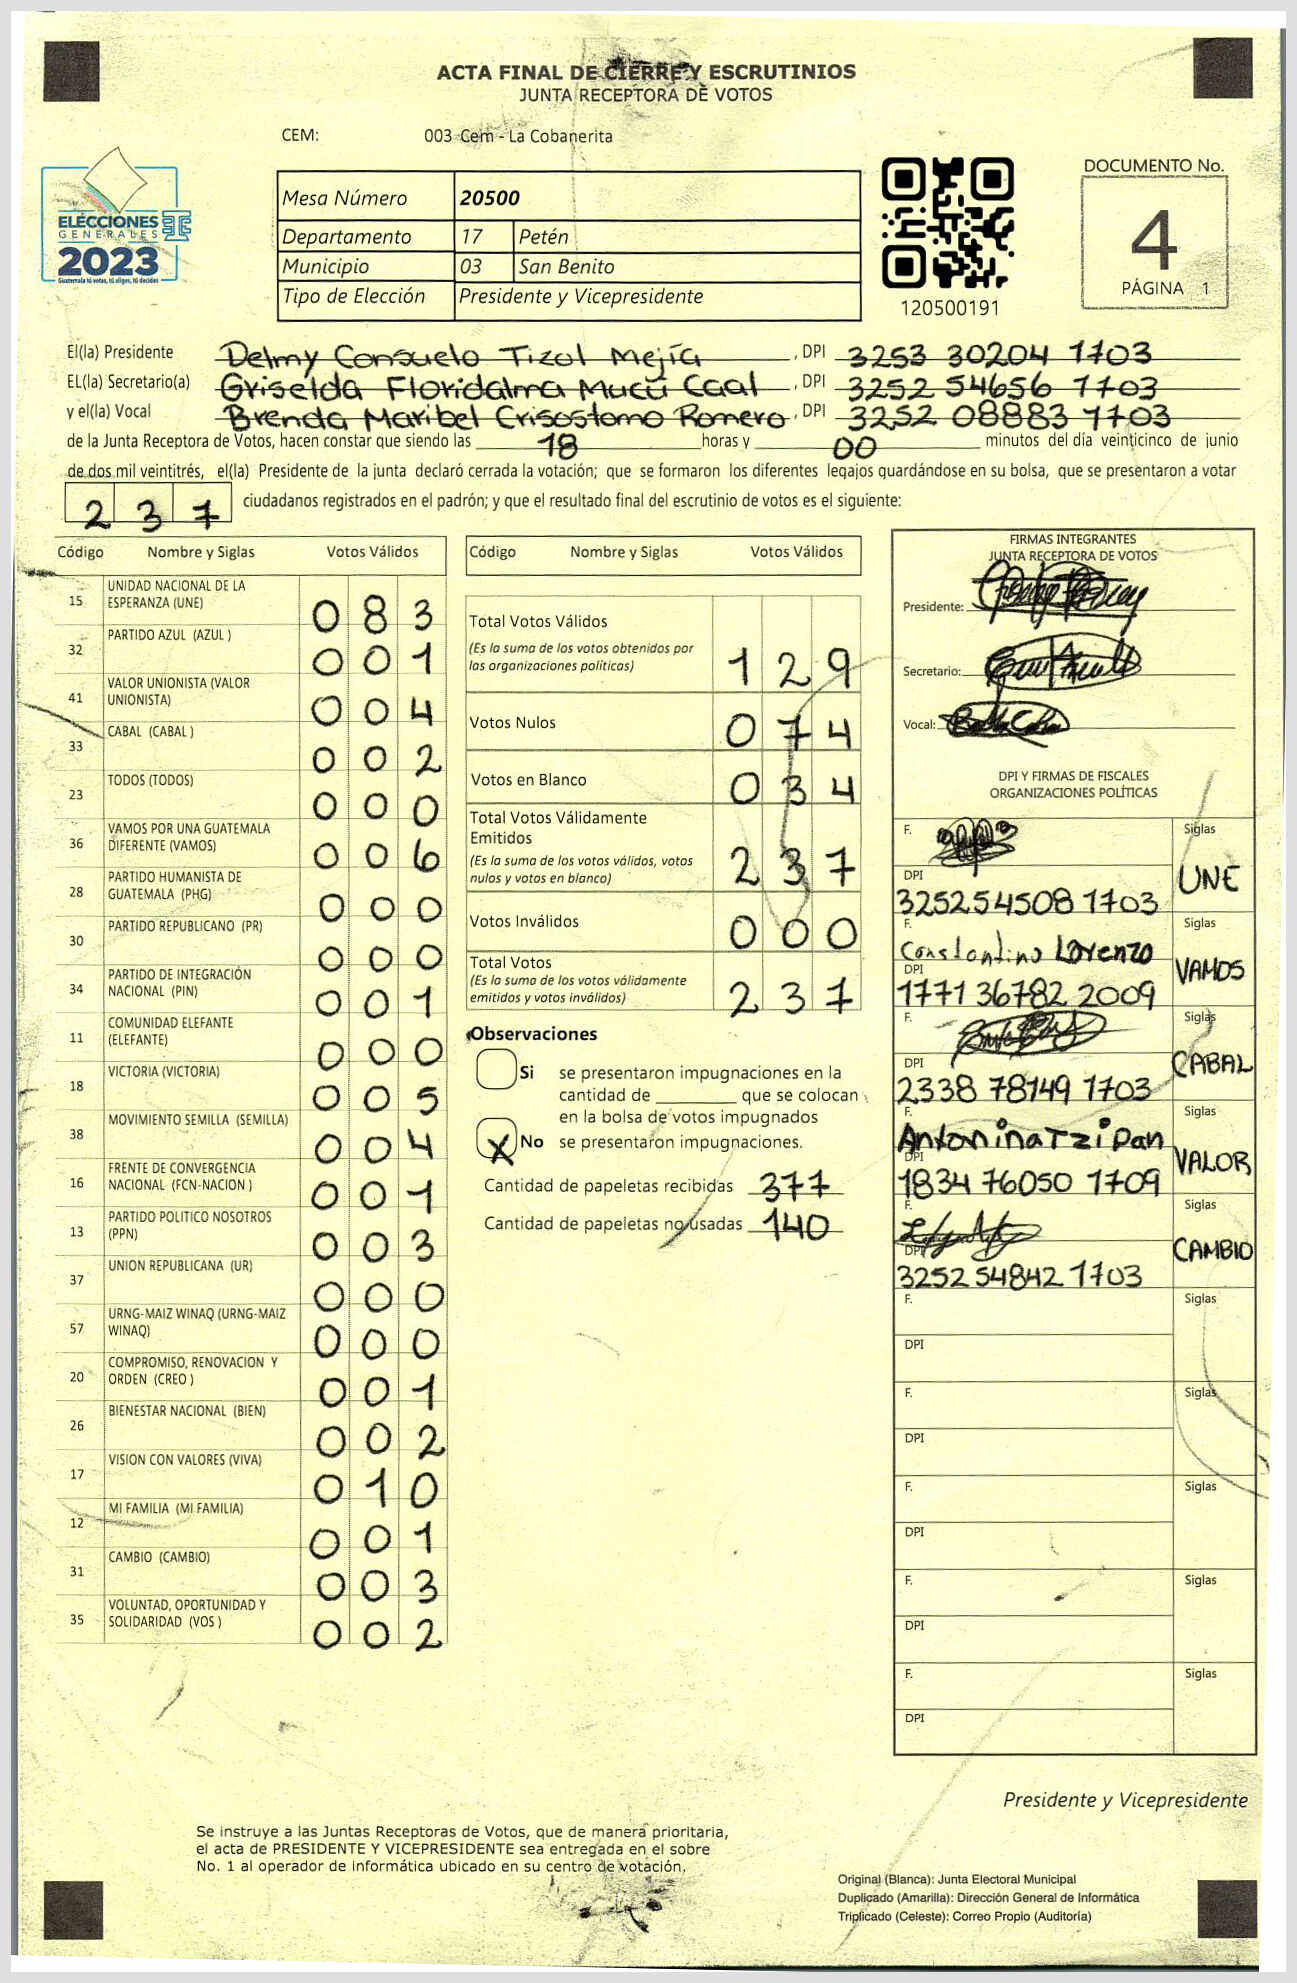 ACTA FINAL DE CIERRE Y ESCRUTINIOS
JUNTA RECEPTORA DE VOTOS
CEM: 003 Cem - La Cobanerita
ELECCIONES
GENERALES
2023
Guatemala tú votas, tú eliges, tú decides
Mesa Número 20500
Departamento 17 Petén
Municipio 03 San Benito
Tipo de Elección Presidente y Vicepresidente
120500191
DOCUMENTO No.
4
PÁGINA 1
El(la) Presidente Delmy Consuelo Tizol Mejía , DPI 3253 30204 1703
EL(la) Secretario(a) Griselda Floridalma Mucú Caal , DPI 3252 54656 1703
y el(la) Vocal Brenda Maribel Crisostomo Romero , DPI 3252 08883 1703
de la Junta Receptora de Votos, hacen constar que siendo las 18 horas y 00 minutos del día veinticinco de junio
de dos mil veintitrés, el(la) Presidente de la junta declaró cerrada la votación; que se formaron los diferentes legajos guardándose en su bolsa, que se presentaron a votar
2 3 7 ciudadanos registrados en el padrón; y que el resultado final del escrutinio de votos es el siguiente:
Código Nombre y Siglas Votos Válidos
15 UNIDAD NACIONAL DE LA
ESPERANZA (UNE) 0 8 3
32 PARTIDO AZUL (AZUL ) 0 0 1
41 VALOR UNIONISTA (VALOR
UNIONISTA) 0 0 4
33 CABAL (CABAL ) 0 0 2
23 TODOS (TODOS) 0 0 0
36 VAMOS POR UNA GUATEMALA
DIFERENTE (VAMOS) 0 0 6
28 PARTIDO HUMANISTA DE
GUATEMALA (PHG) 0 0 0
30 PARTIDO REPUBLICANO (PR) 0 0 0
34 PARTIDO DE INTEGRACIÓN
NACIONAL (PIN) 0 0 1
11 COMUNIDAD ELEFANTE
(ELEFANTE) 0 0 0
18 VICTORIA (VICTORIA) 0 0 5
38 MOVIMIENTO SEMILLA (SEMILLA) 0 0 4
16 FRENTE DE CONVERGENCIA
NACIONAL (FCN-NACION ) 0 0 1
13 PARTIDO POLITICO NOSOTROS
(PPN) 0 0 3
37 UNION REPUBLICANA (UR) 0 0 0
57 URNG-MAIZ WINAQ (URNG-MAIZ
WINAQ) 0 0 0
20 COMPROMISO, RENOVACION Y
ORDEN (CREO ) 0 0 1
26 BIENESTAR NACIONAL (BIEN) 0 0 2
17 VISION CON VALORES (VIVA) 0 1 0
12 MI FAMILIA (MI FAMILIA) 0 0 1
31 CAMBIO (CAMBIO) 0 0 3
35 VOLUNTAD, OPORTUNIDAD Y
SOLIDARIDAD (VOS ) 0 0 2
Código Nombre y Siglas Votos Válidos
Total Votos Válidos
(Es la suma de los votos obtenidos por
las organizaciones políticas) 1 2 9
Votos Nulos 0 7 4
Votos en Blanco 0 3 4
Total Votos Válidamente
Emitidos
(Es la suma de los votos válidos, votos
nulos y votos en blanco) 2 3 7
Votos Inválidos 0 0 0
Total Votos
(Es la suma de los votos válidamente
emitidos y votos inválidos) 2 3 7
Observaciones
Si se presentaron impugnaciones en la
cantidad de ________ que se colocan
en la bolsa de votos impugnados
X No se presentaron impugnaciones.
Cantidad de papeletas recibidas 377
Cantidad de papeletas no usadas 140
FIRMAS INTEGRANTES
JUNTA RECEPTORA DE VOTOS
Presidente:
Secretario:
Vocal:
DPI Y FIRMAS DE FISCALES
ORGANIZACIONES POLÍTICAS
F. Siglas
DPI UNE
3252 54508 1703
F. Constantino Lorenzo Siglas
DPI VAMOS
1771 36782 2009
F. Siglas
DPI CABAL
2338 78149 1703
F. Antonina Tzipan Siglas
DPI VALOR
1834 76050 1709
F. Siglas
DPI CAMBIO
3252 54842 1703
F. Siglas
DPI
F. Siglas
DPI
F. Siglas
DPI
F. Siglas
DPI
F. Siglas
DPI
Presidente y Vicepresidente
Se instruye a las Juntas Receptoras de Votos, que de manera prioritaria,
el acta de PRESIDENTE Y VICEPRESIDENTE sea entregada en el sobre
No. 1 al operador de informática ubicado en su centro de votación.
Original (Blanca): Junta Electoral Municipal
Duplicado (Amarilla): Dirección General de Informática
Triplicado (Celeste): Correo Propio (Auditoría)